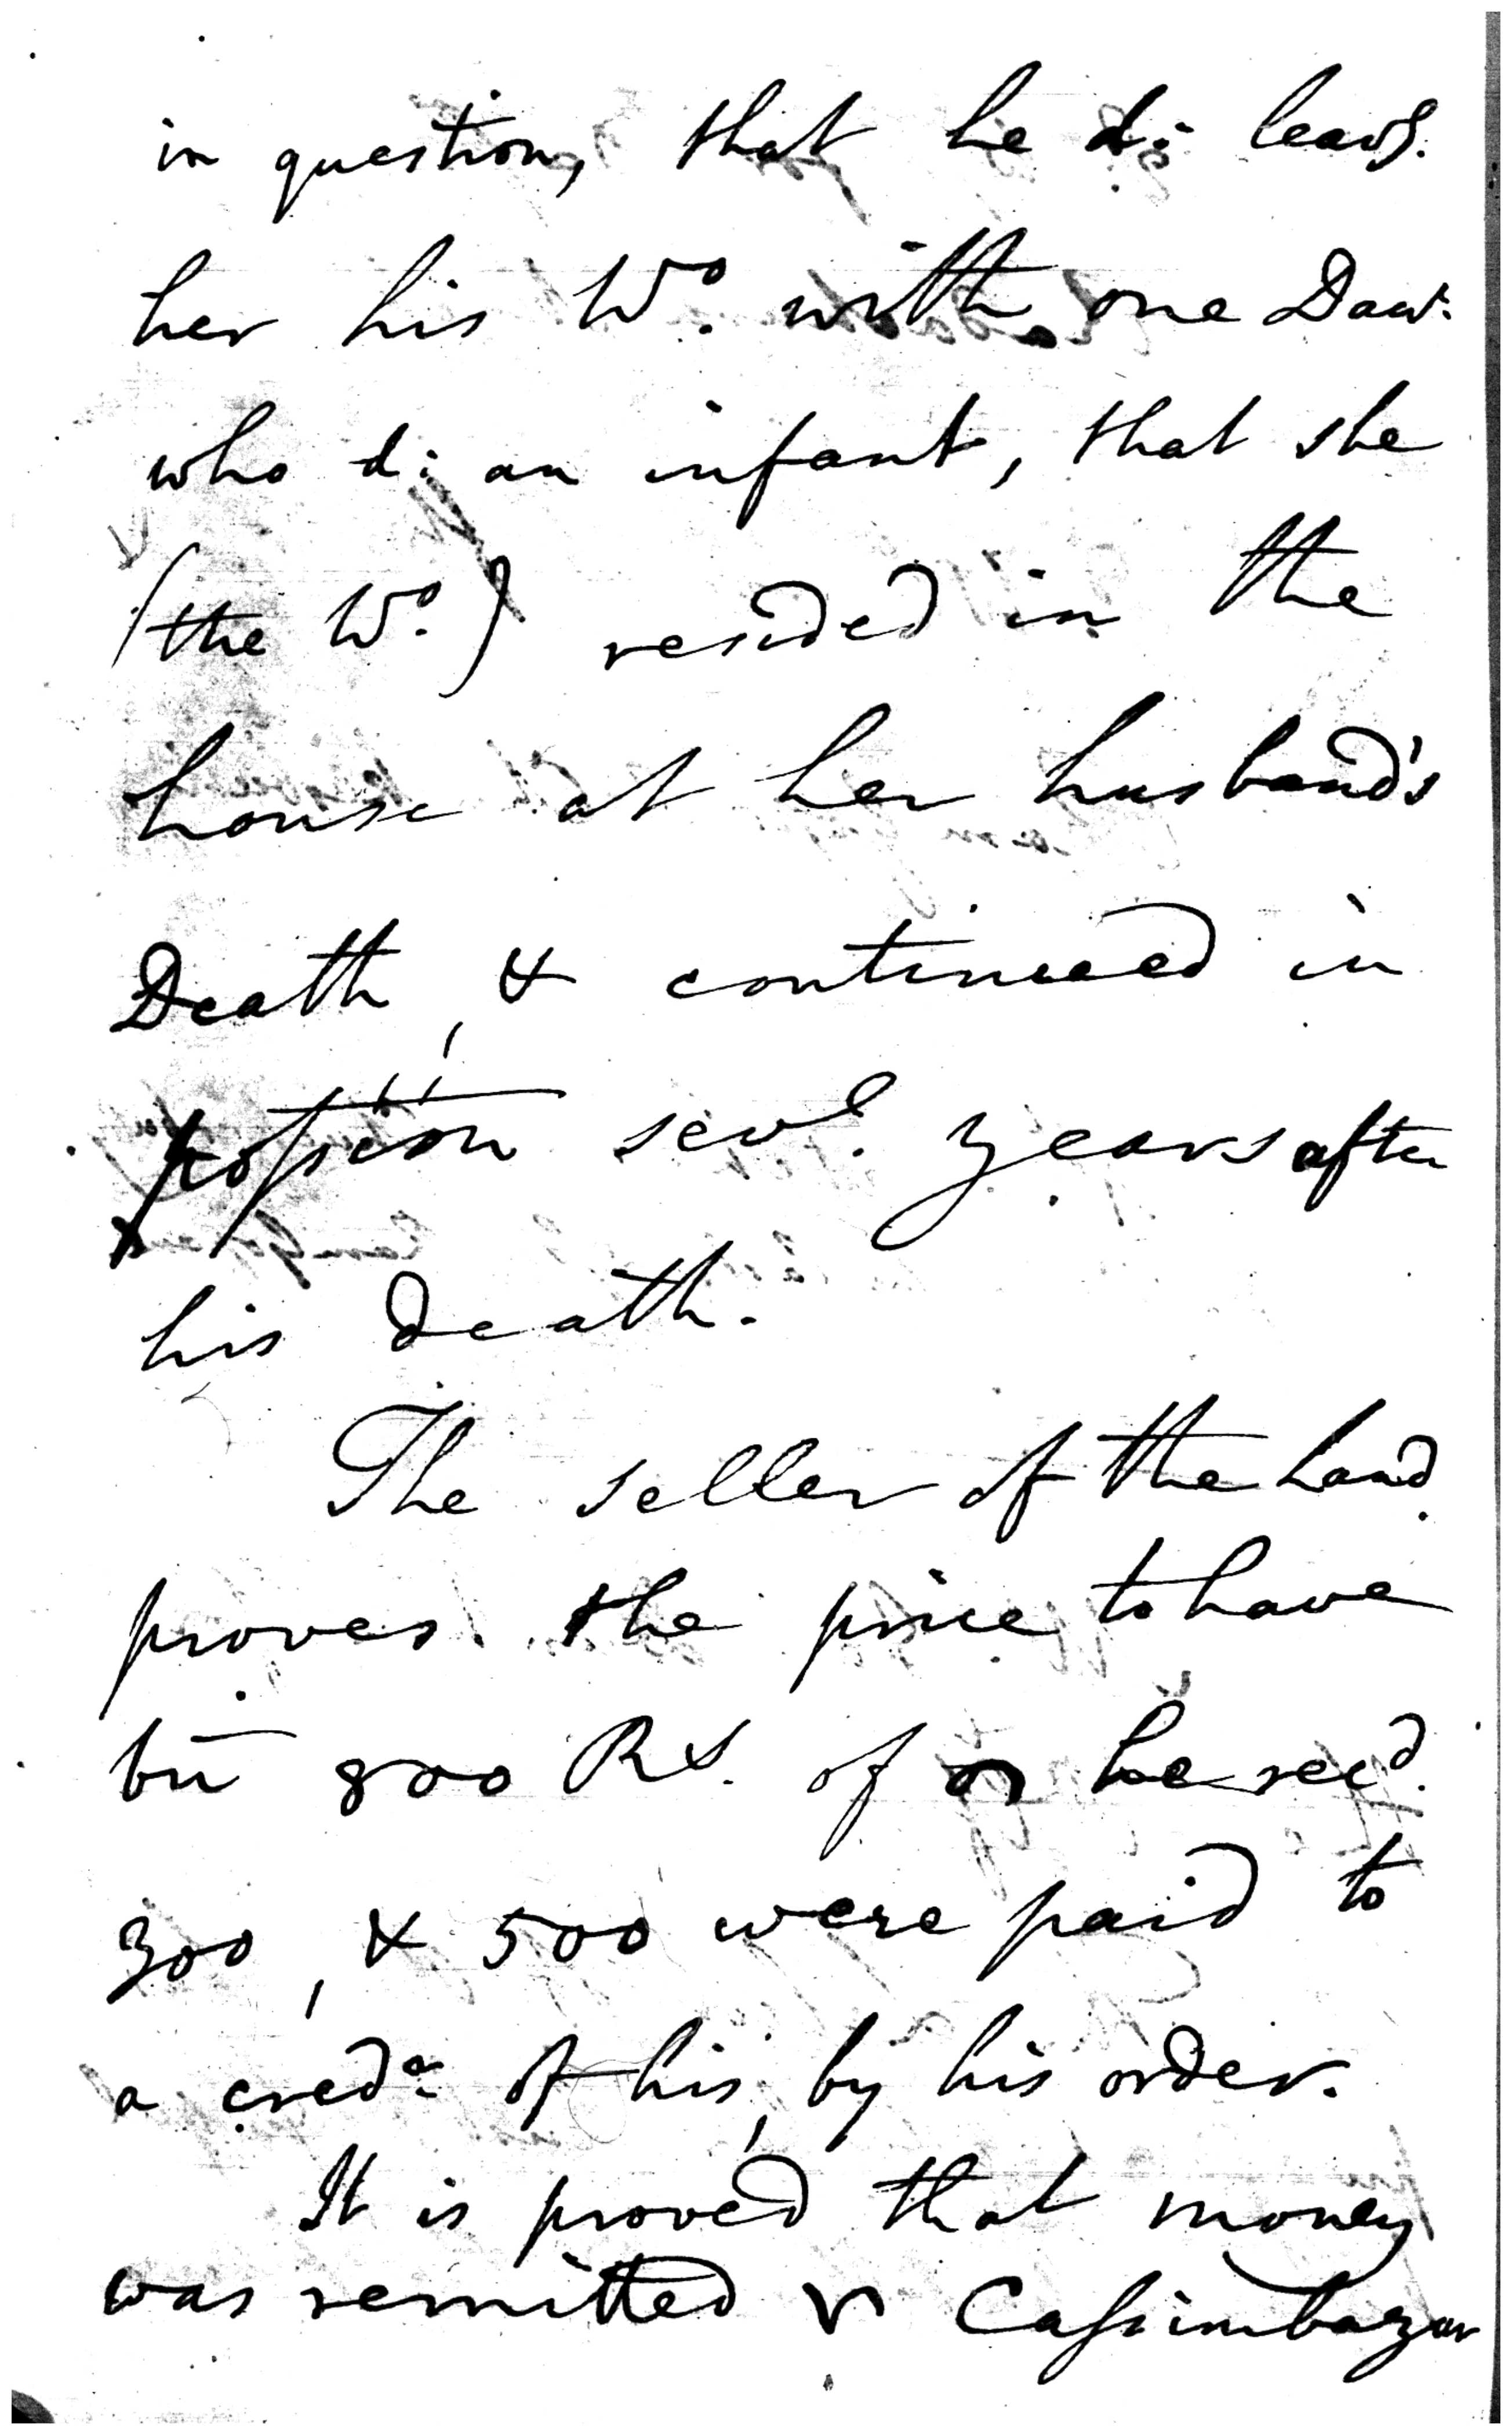 in question, that he d: leavg.
her his Wo. with one Daur.
who d: an infant, that she
(the Wo.) resided in the
house at her husband's
Death, & continued in
possion sevl. years after
his death.
The seller of the Land
proves the price to have
bn 800 Rs. of he recd.
300, & 500 were paid to
a credr of his, by his order.
It is proved that money
was remitted Cassimbazar